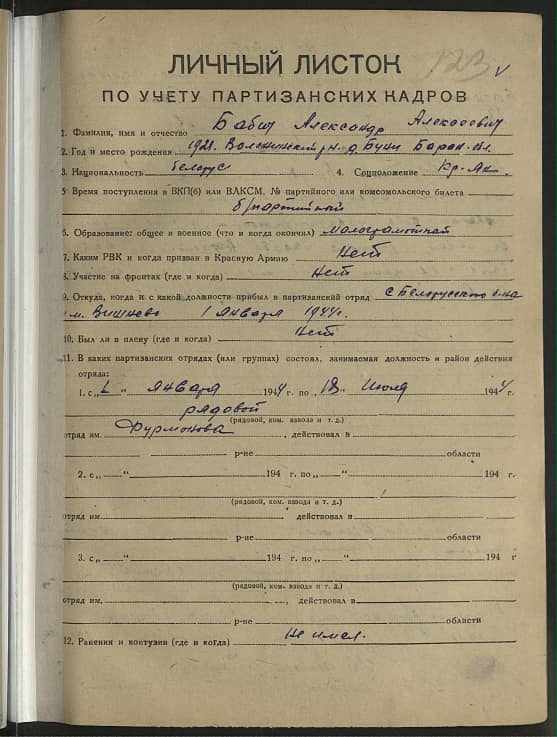 123 v
ЛИЧНЫЙ ЛИСТОК
ПО УЧЕТУ ПАРТИЗАНСКИХ КАДРОВ
1. Фамилия, имя и отчество Бабич Александр Алексеевич
2. Год и место рождения 1921. Воложинский р-н. д. Буни Баран. обл.
3. Национальность белорус 4. Соцположение кр-ян.
5 Время поступления в ВКП(б) или ВЛКСМ, № партийного или комсомольского билета
б/партийный
6. Образование: общее и военное (что и когда окончил) малограмотный
7. Каким РВК и когда призван в Красную Армию Нет
8. Участие на фронтах (где и когда) Нет
9. Откуда, когда и с какой должности прибыл в партизанский отряд с Белорусского
м. Вишнево 1 января 1944г.
10. Был ли в плену (где и когда) Нет
11. В каких партизанских отрядах (или группах) состоял, занимаемая должность и район действия
отряда:
1. с „1“ января 1944 г. по „18“ Июля 1944 г.
рядовой
(рядовой, ком. взвода и т. д.)
отряд им. Фурмонова, действовал в
р-не области
2. с „ “ 194 г. по „ “ 194 г.
(рядовой, ком. взвода и т. д.)
отряд им. , действовал в
р-не области
3. с „ “ 194 г. по „ “ 194 г
(рядовой, ком. взвода и т. д.)
отряд им. , действовал в
р-не области
12. Ранения и контузии (где и когда) Не имел.